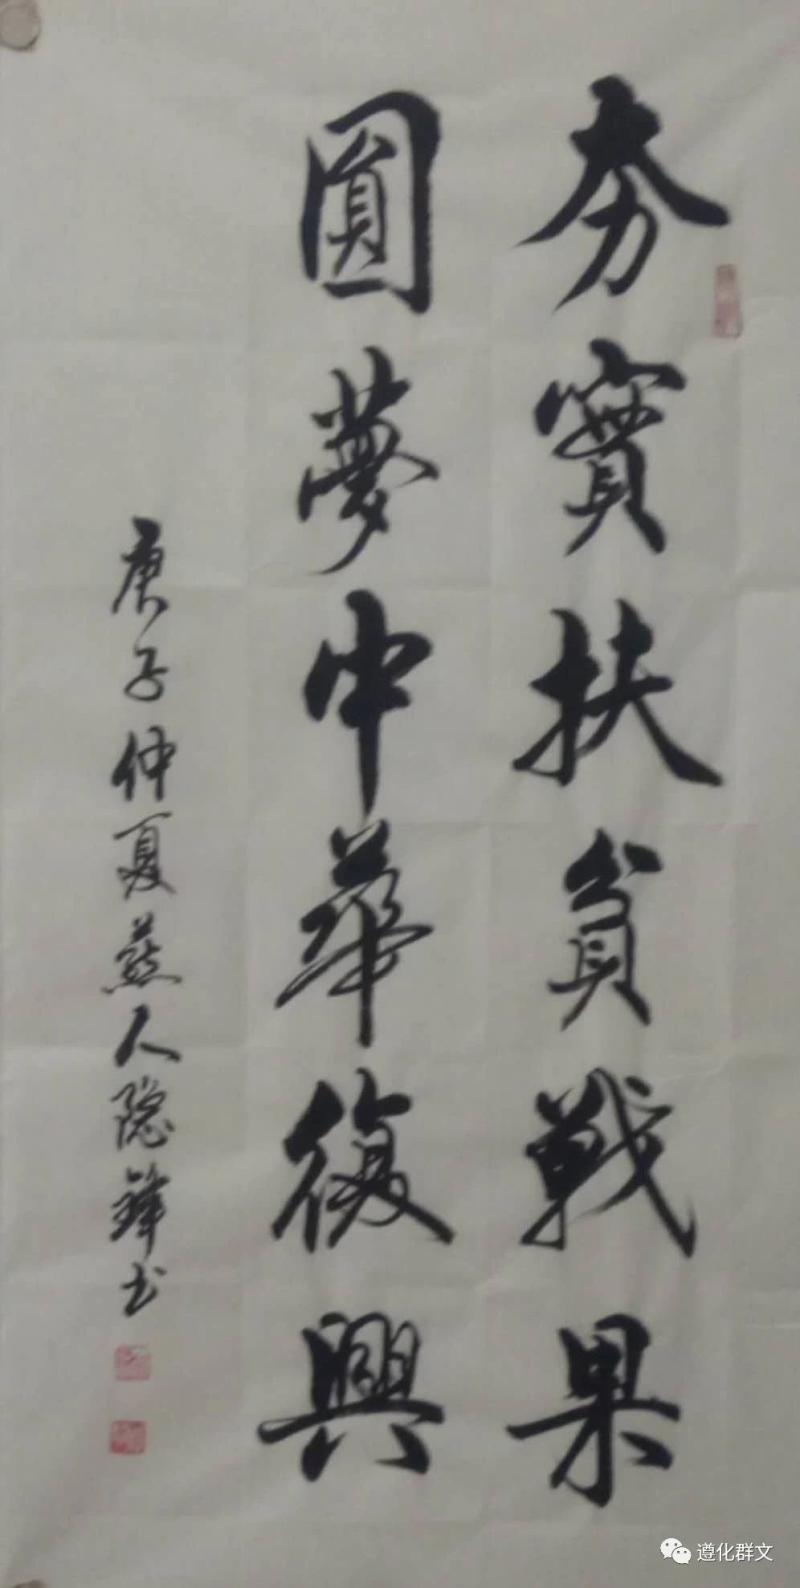 夯實扶貧戰果
圓夢中華復興
庚子仲夏燕人隐鋒书
遵化群文